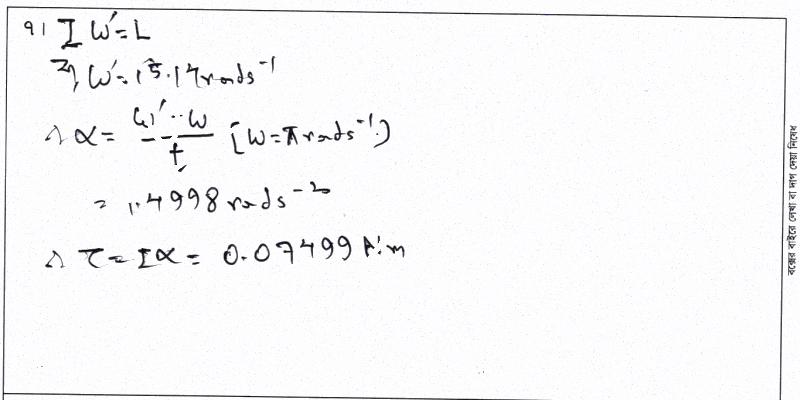 ৭। I ω′ = L
বা, ω′ = 15.14 rads⁻¹
∴ α = (ω′ - ω)/t [ω = π rads⁻¹]
= 1.4998 rads⁻²
∴ τ = Iα = 0.07499 N.m
বক্সের বাইরে লেখা বা দাগ দেয়া নিষেধ